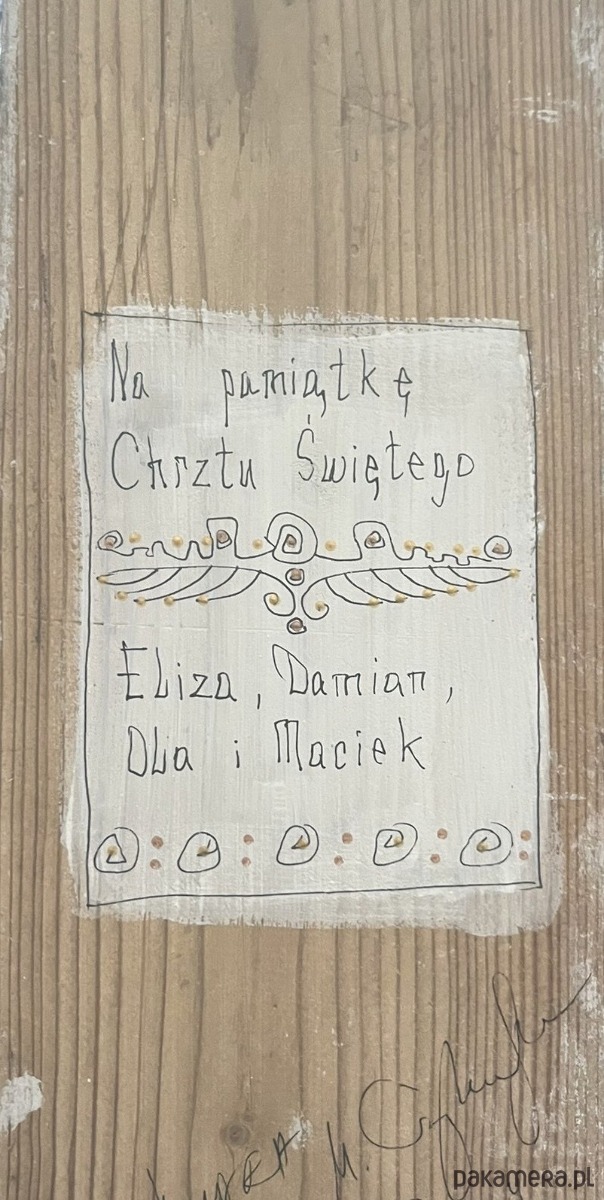 Na pamiątkę
Chrztu Świętego
Eliza, Damian,
Ola i Maciek
M.
pakamera.pl